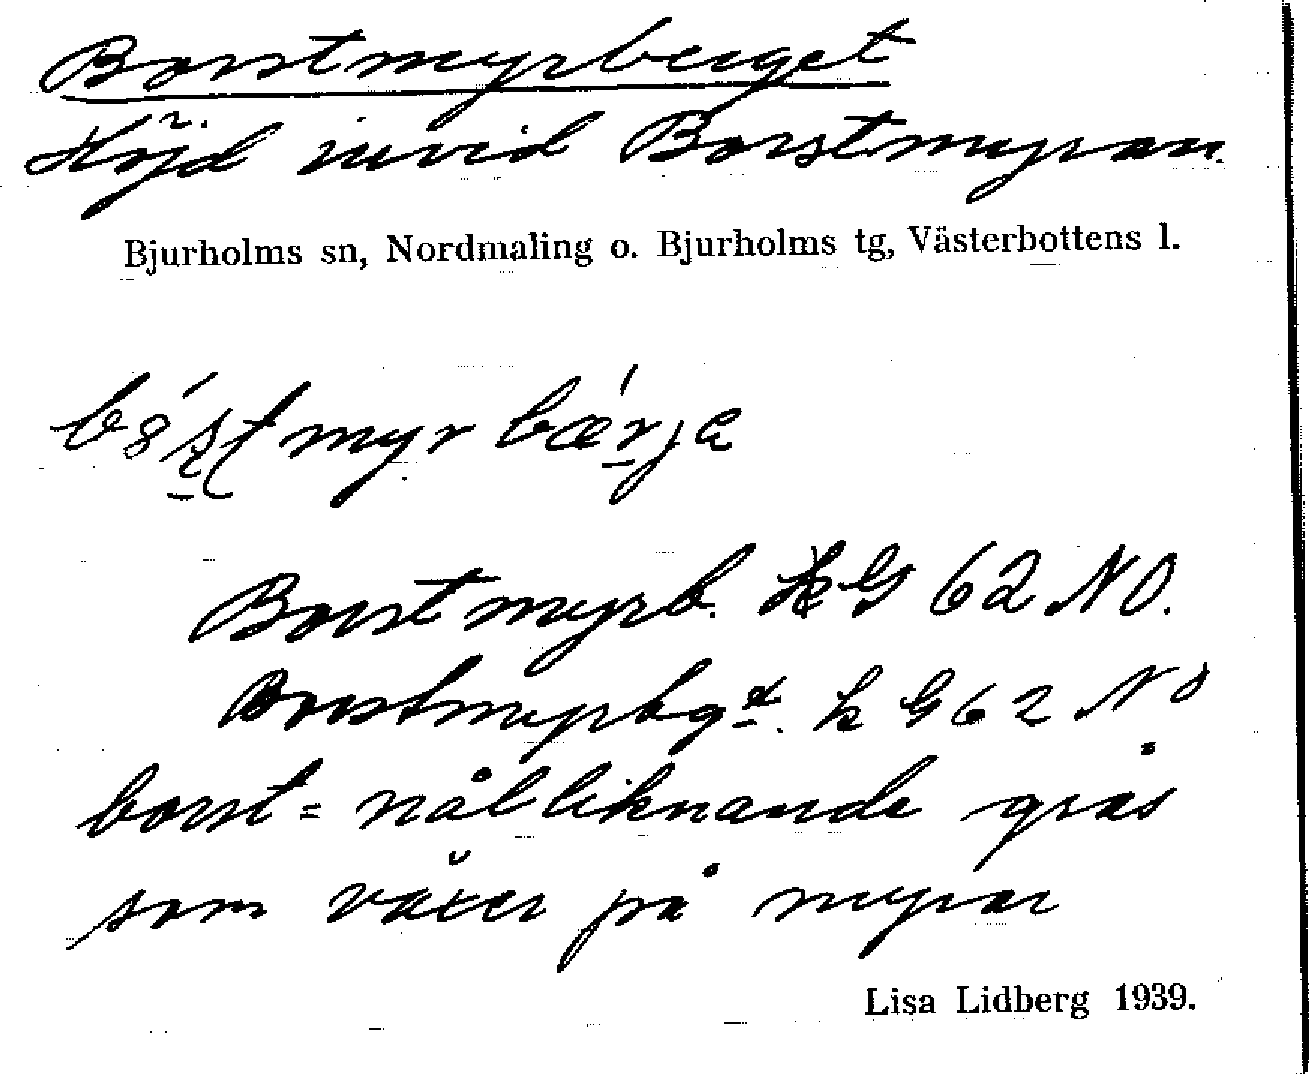 Borstmyrberget
Höjd invid Borstmyran.
Bjurholms sn, Nordmaling o. Bjurholms tg, Västerbottens l.
myr
Borstmyrb. k G 62 NO.
Borstmyrbgt. k G 62 NO
borst = nålliknande gräs
som växer på myrar
Lisa Lidberg 1939.